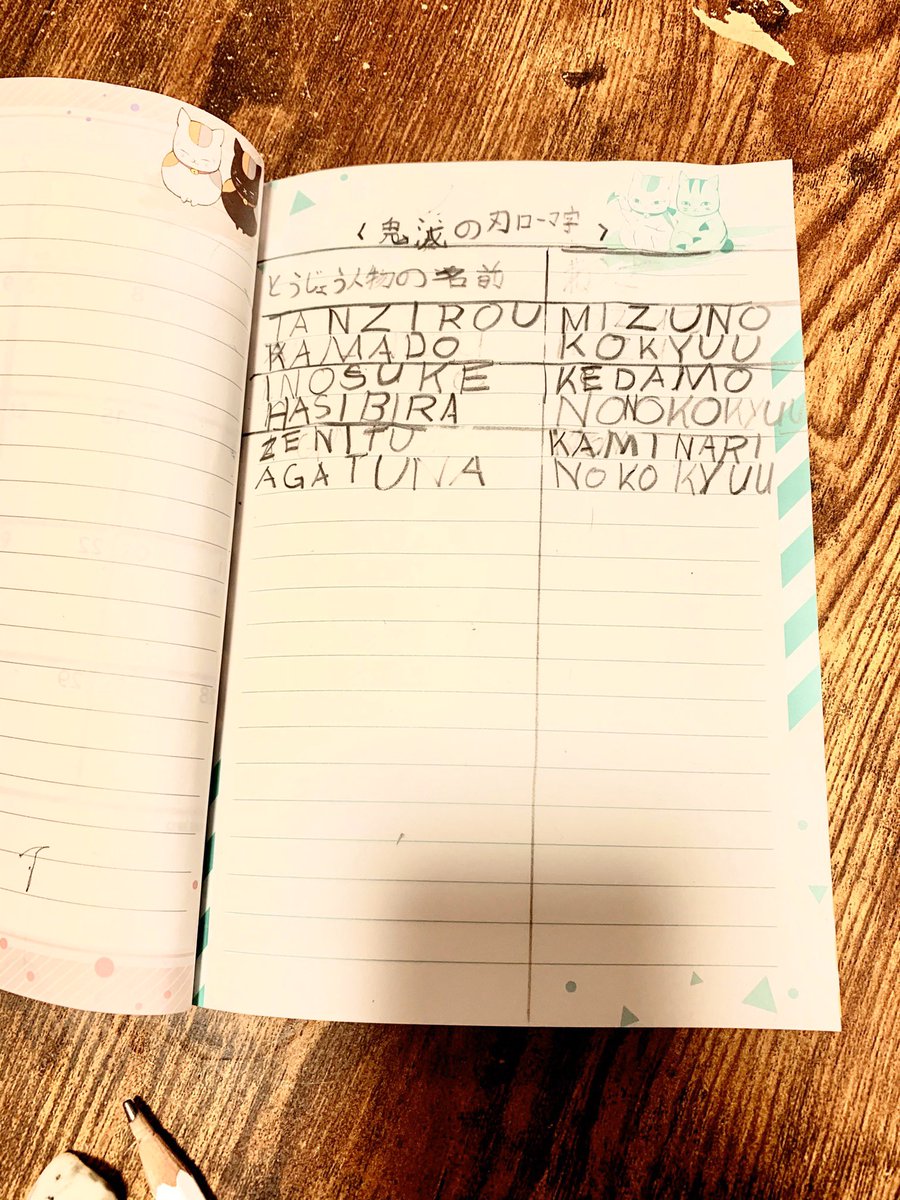 〈鬼滅の刃ローマ字〉
とうじょう人物の名前
TANZIROU MIZUNO
KAMADO KOKYUU
INOSUKE KEDAMO
HASIBIRA NONOKOKYUU
ZENITU KAMINARI
AGATUNA NOKOKYUU